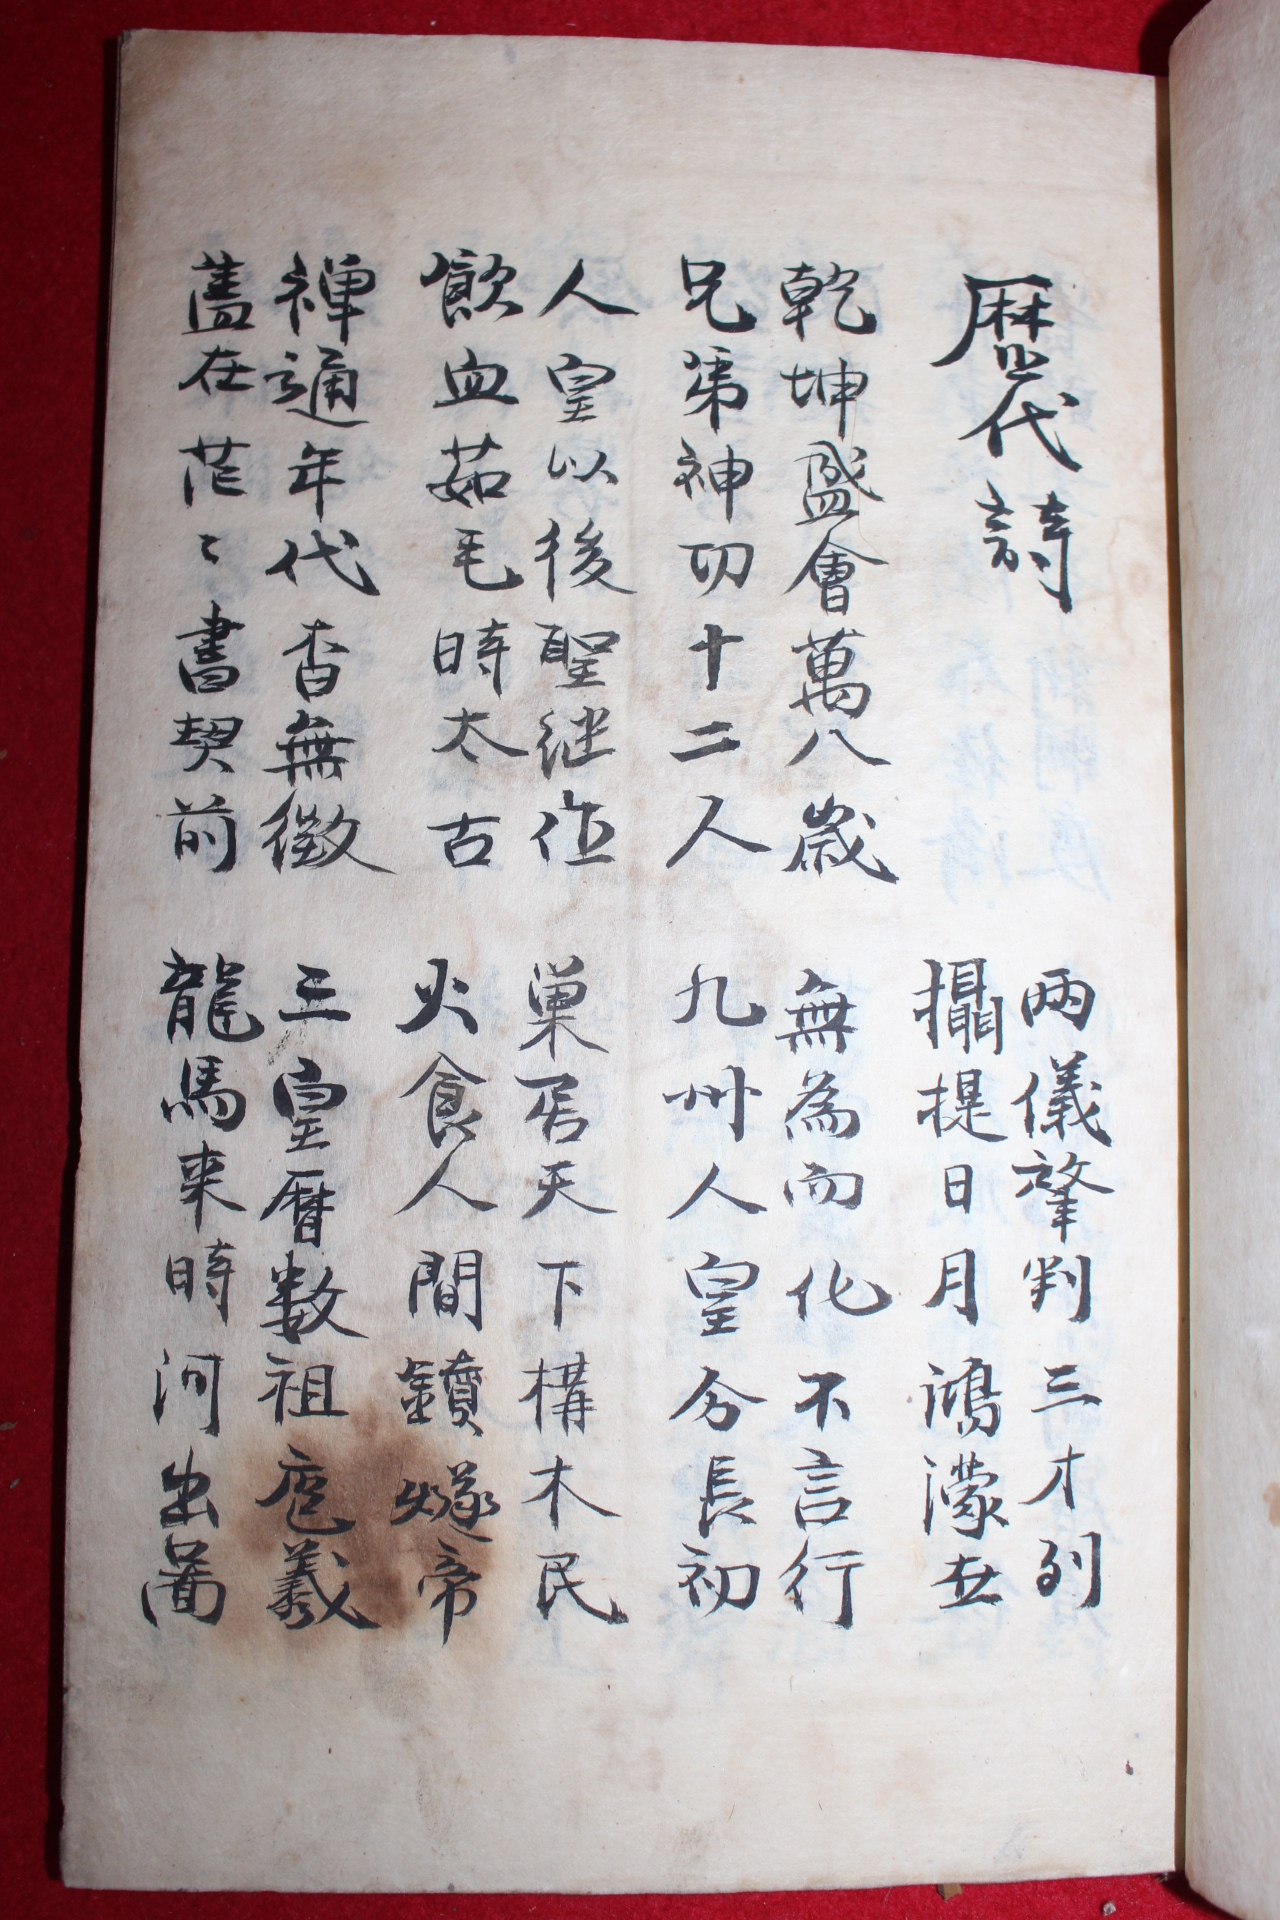 歴代詩
兩儀肇判三才列
攝提日月鴻濛世
乾坤盛會萬八歲 無為而化不言行
兄弟神功十二人 九州人皇分長初
人皇以後聖継作 巢居天下構木民
飮血茹毛時太古 火食人間鑽燧帝
禪通年代杳無徵 三皇曆数祖庖羲
蓋在茫〻書契前 龍馬来時河出啚